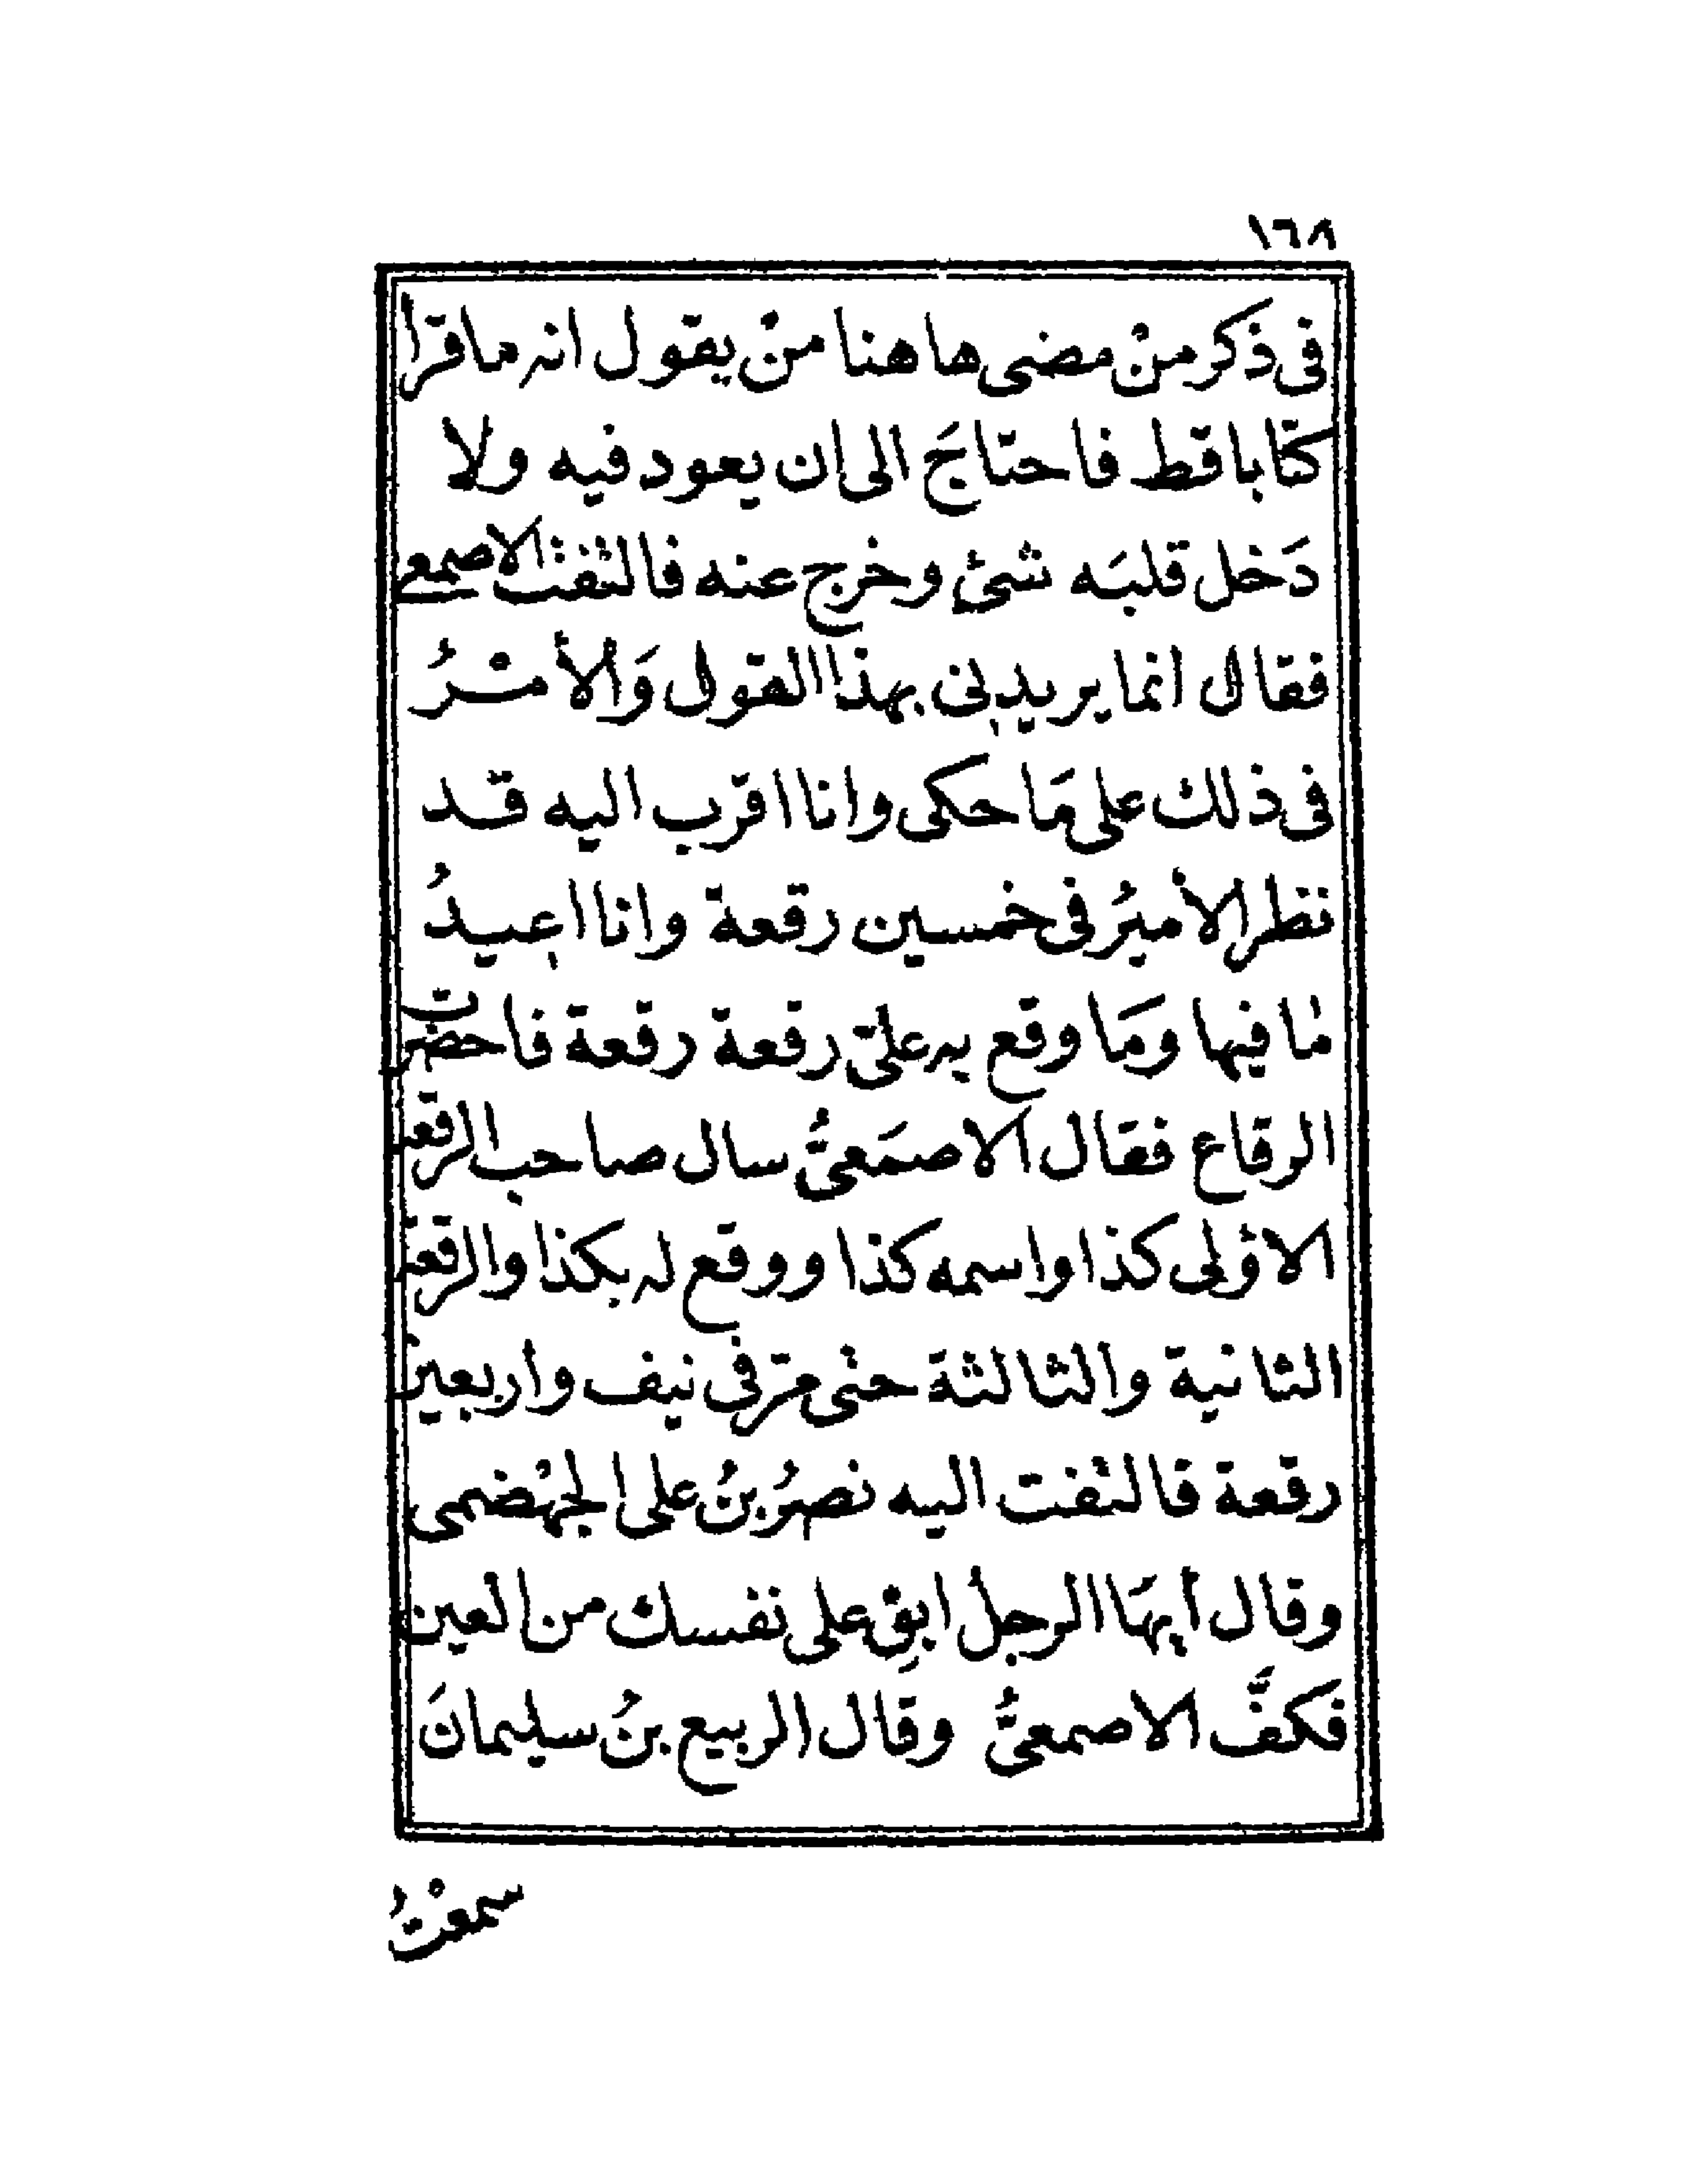 ١٦٨
فى ذكر منْ مضى هاهنا منْ يقول انه ما قرأ
كتابا قط فاحتاجَ الى ان يعود فيه ولا
دَخل قلبَه شئ وخرج عنه فالتفت الاصمعى
فقال انما يريدنى بهذا القول وَالأمْرُ
فى ذلك على مَا حكى وانا اقرب اليه قد
نظر الأميرُ فى خمسين رقعة وانا اعيدُ
مَا فيها ومَا وقع به على رقعة رقعة فاحضرت
الرقاع فقال الاصمَعىُّ سال صاحب الرقعة
الاولى كذا واسمه كذا ووقع له بكذا والرقعة
الثانية والثالثة حتى مرّ فى نيف واربعين
رقعة فالتفت اليه نصرُ بنُ على الجهْضمى
وقال أيهَا الرجلُ ابقِ على نفسك من العين
فكفَّ الاصمعىُّ وقال الربيع بنُ سليمانَ
سمعْتُ